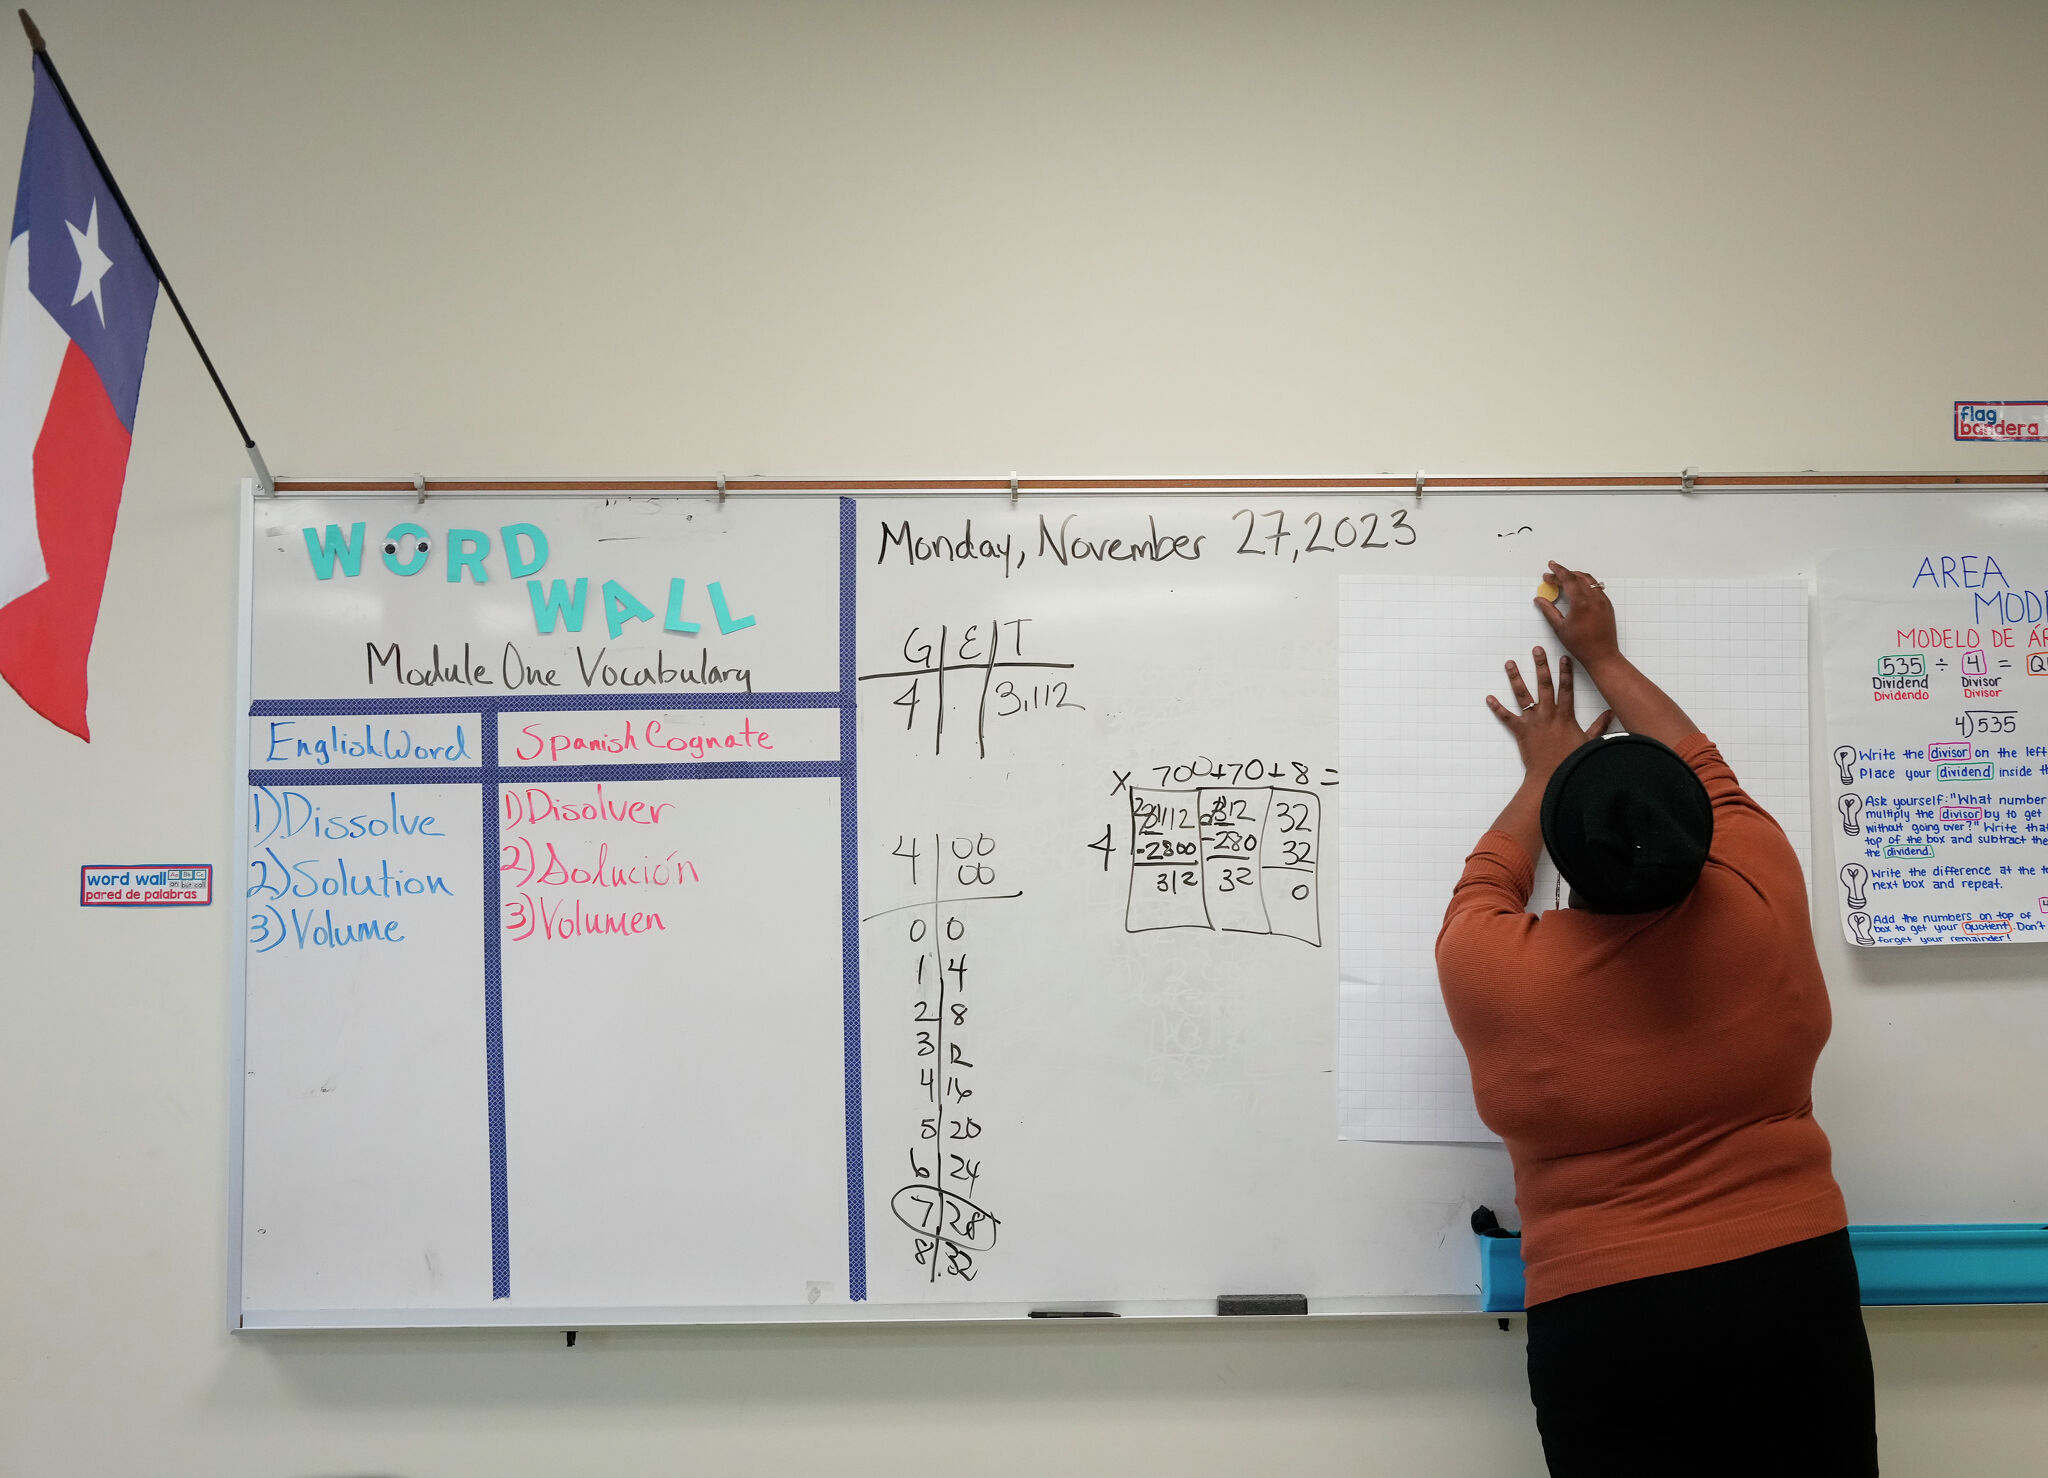 flag
bandera
WORD
WALL
Module One Vocabulary
English Word
Spanish Cognate
1) Dissolve
1) Disolver
2) Solution
2) Solución
3) Volume
3) Volumen
word wall
Aa Bb Cc
an but call
pared de palabras
Monday, November 27, 2023
G E T
4 3,112
4 00
00
0 0
1 4
2 8
3 12
4 16
5 20
6 24
7 28
8 32
x 700+70+8=
4
3112
-2800
312
312
-280
32
32
32
0
AREA
MODE
MODELO DE ÁR
535 ÷ 4 =
Dividend Divisor
Dividendo Divisor
4)535
Write the divisor on the left
Place your dividend inside
Ask yourself: "What number
multiply the divisor by to get
without going over?" Write
top of the box and subtract
the dividend.
Write the difference at the
next box and repeat.
Add the numbers on top of
box to get your quotient. Don't
forget your remainder!